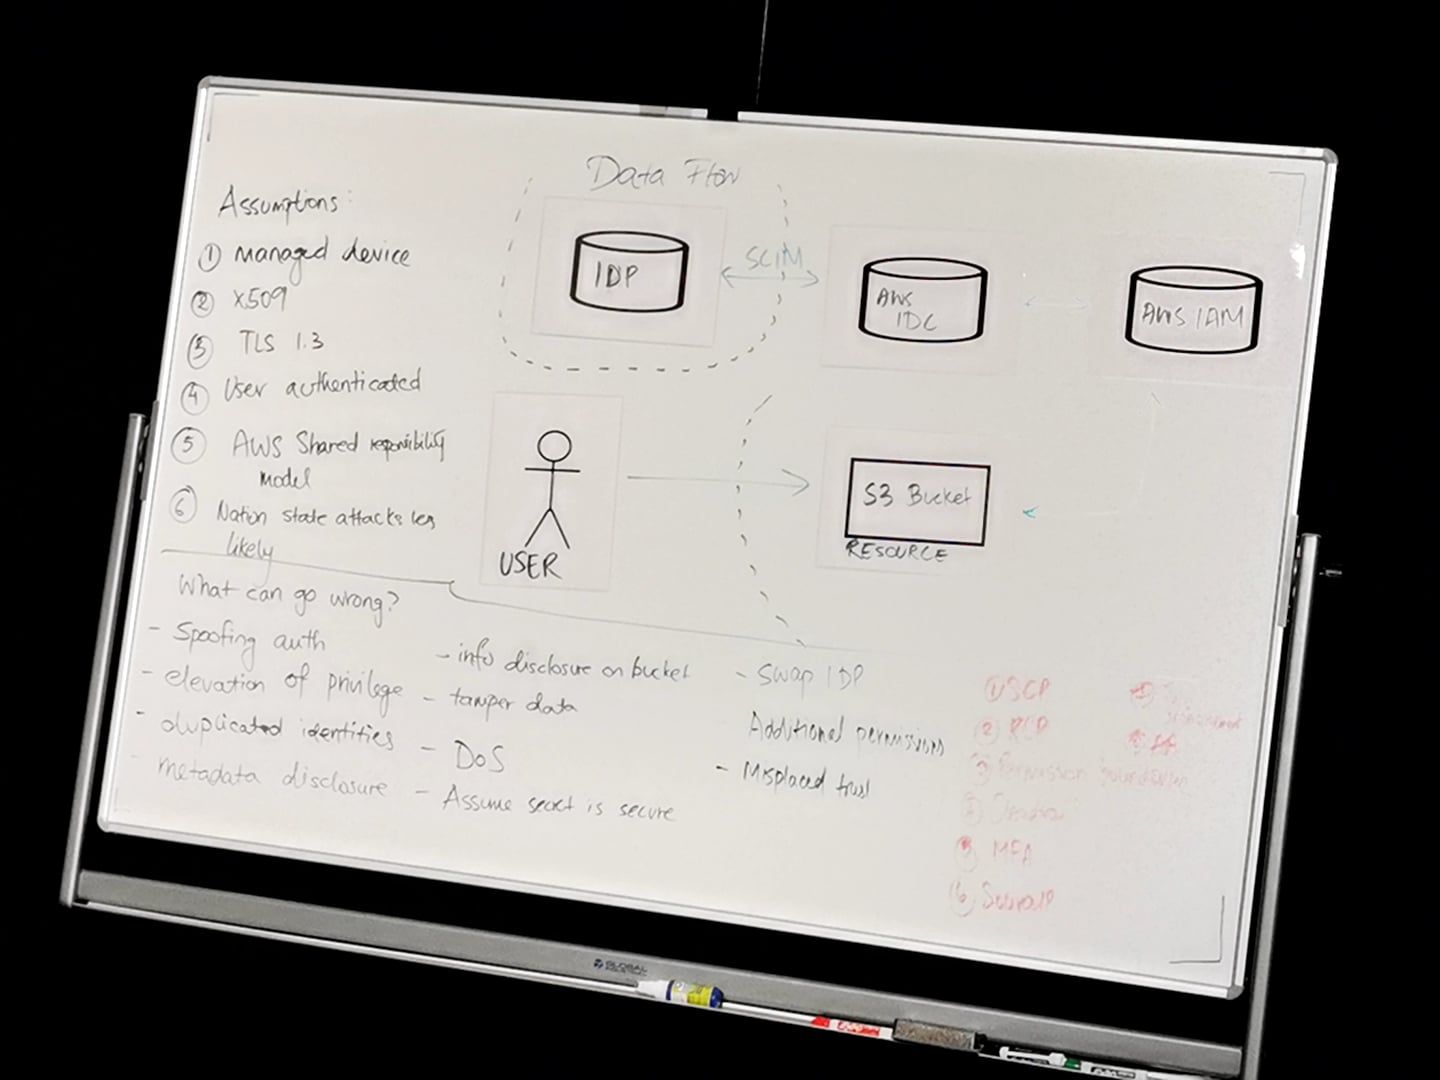 Data Flow
Assumptions:
① Managed device
② X509
③ TLS 1.3
④ User authenticated
⑤ AWS Shared responsibility
model
⑥ Nation state attacks less
likely
IDP
SCIM
AWS
IDC
AWS IAM
USER
S3 Bucket
RESOURCE
What can go wrong?
- Spoofing auth
- elevation of privilege
- duplicated identities
- metadata disclosure
- info disclosure on bucket
- tamper data
- DoS
- Assume secret is secure
- Swap IDP
Additional permissions
- Misplaced trust
① SCP
② RCP
③ Permission boundaries
⑤ MFA
⑥
GLOBAL